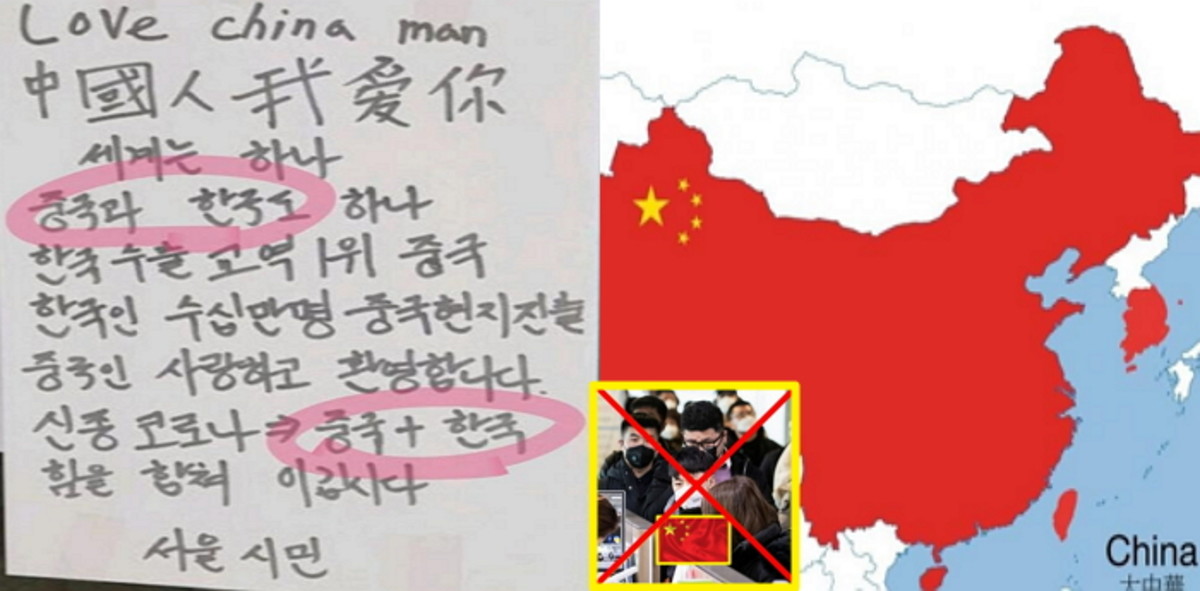 Love china man
中國人 我 爱 你
세계는 하나
중국과 한국도 하나
한국 수출 교역 1위 중국
한국인 수십만명 중국현지진출
중국인 사랑하고 환영합니다.
신종 코로나 ⇒ 중국 + 한국
힘을 합쳐 이깁시다
서울 시민
China
大中華